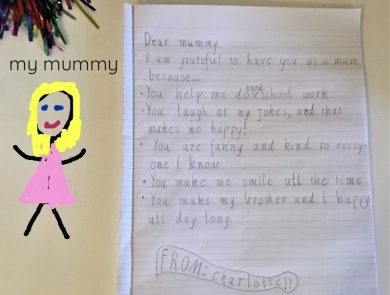 my mummy
Dear mummy,
I am grateful to have you as a mum
because...
• You help me do hard school work.
• You laugh at my jokes, and that
makes me happy!
• You are funny and kind to every-
one I know
• You make me smile all the time
• You make my brother and I happy
all day long.
FROM: charlotte!!